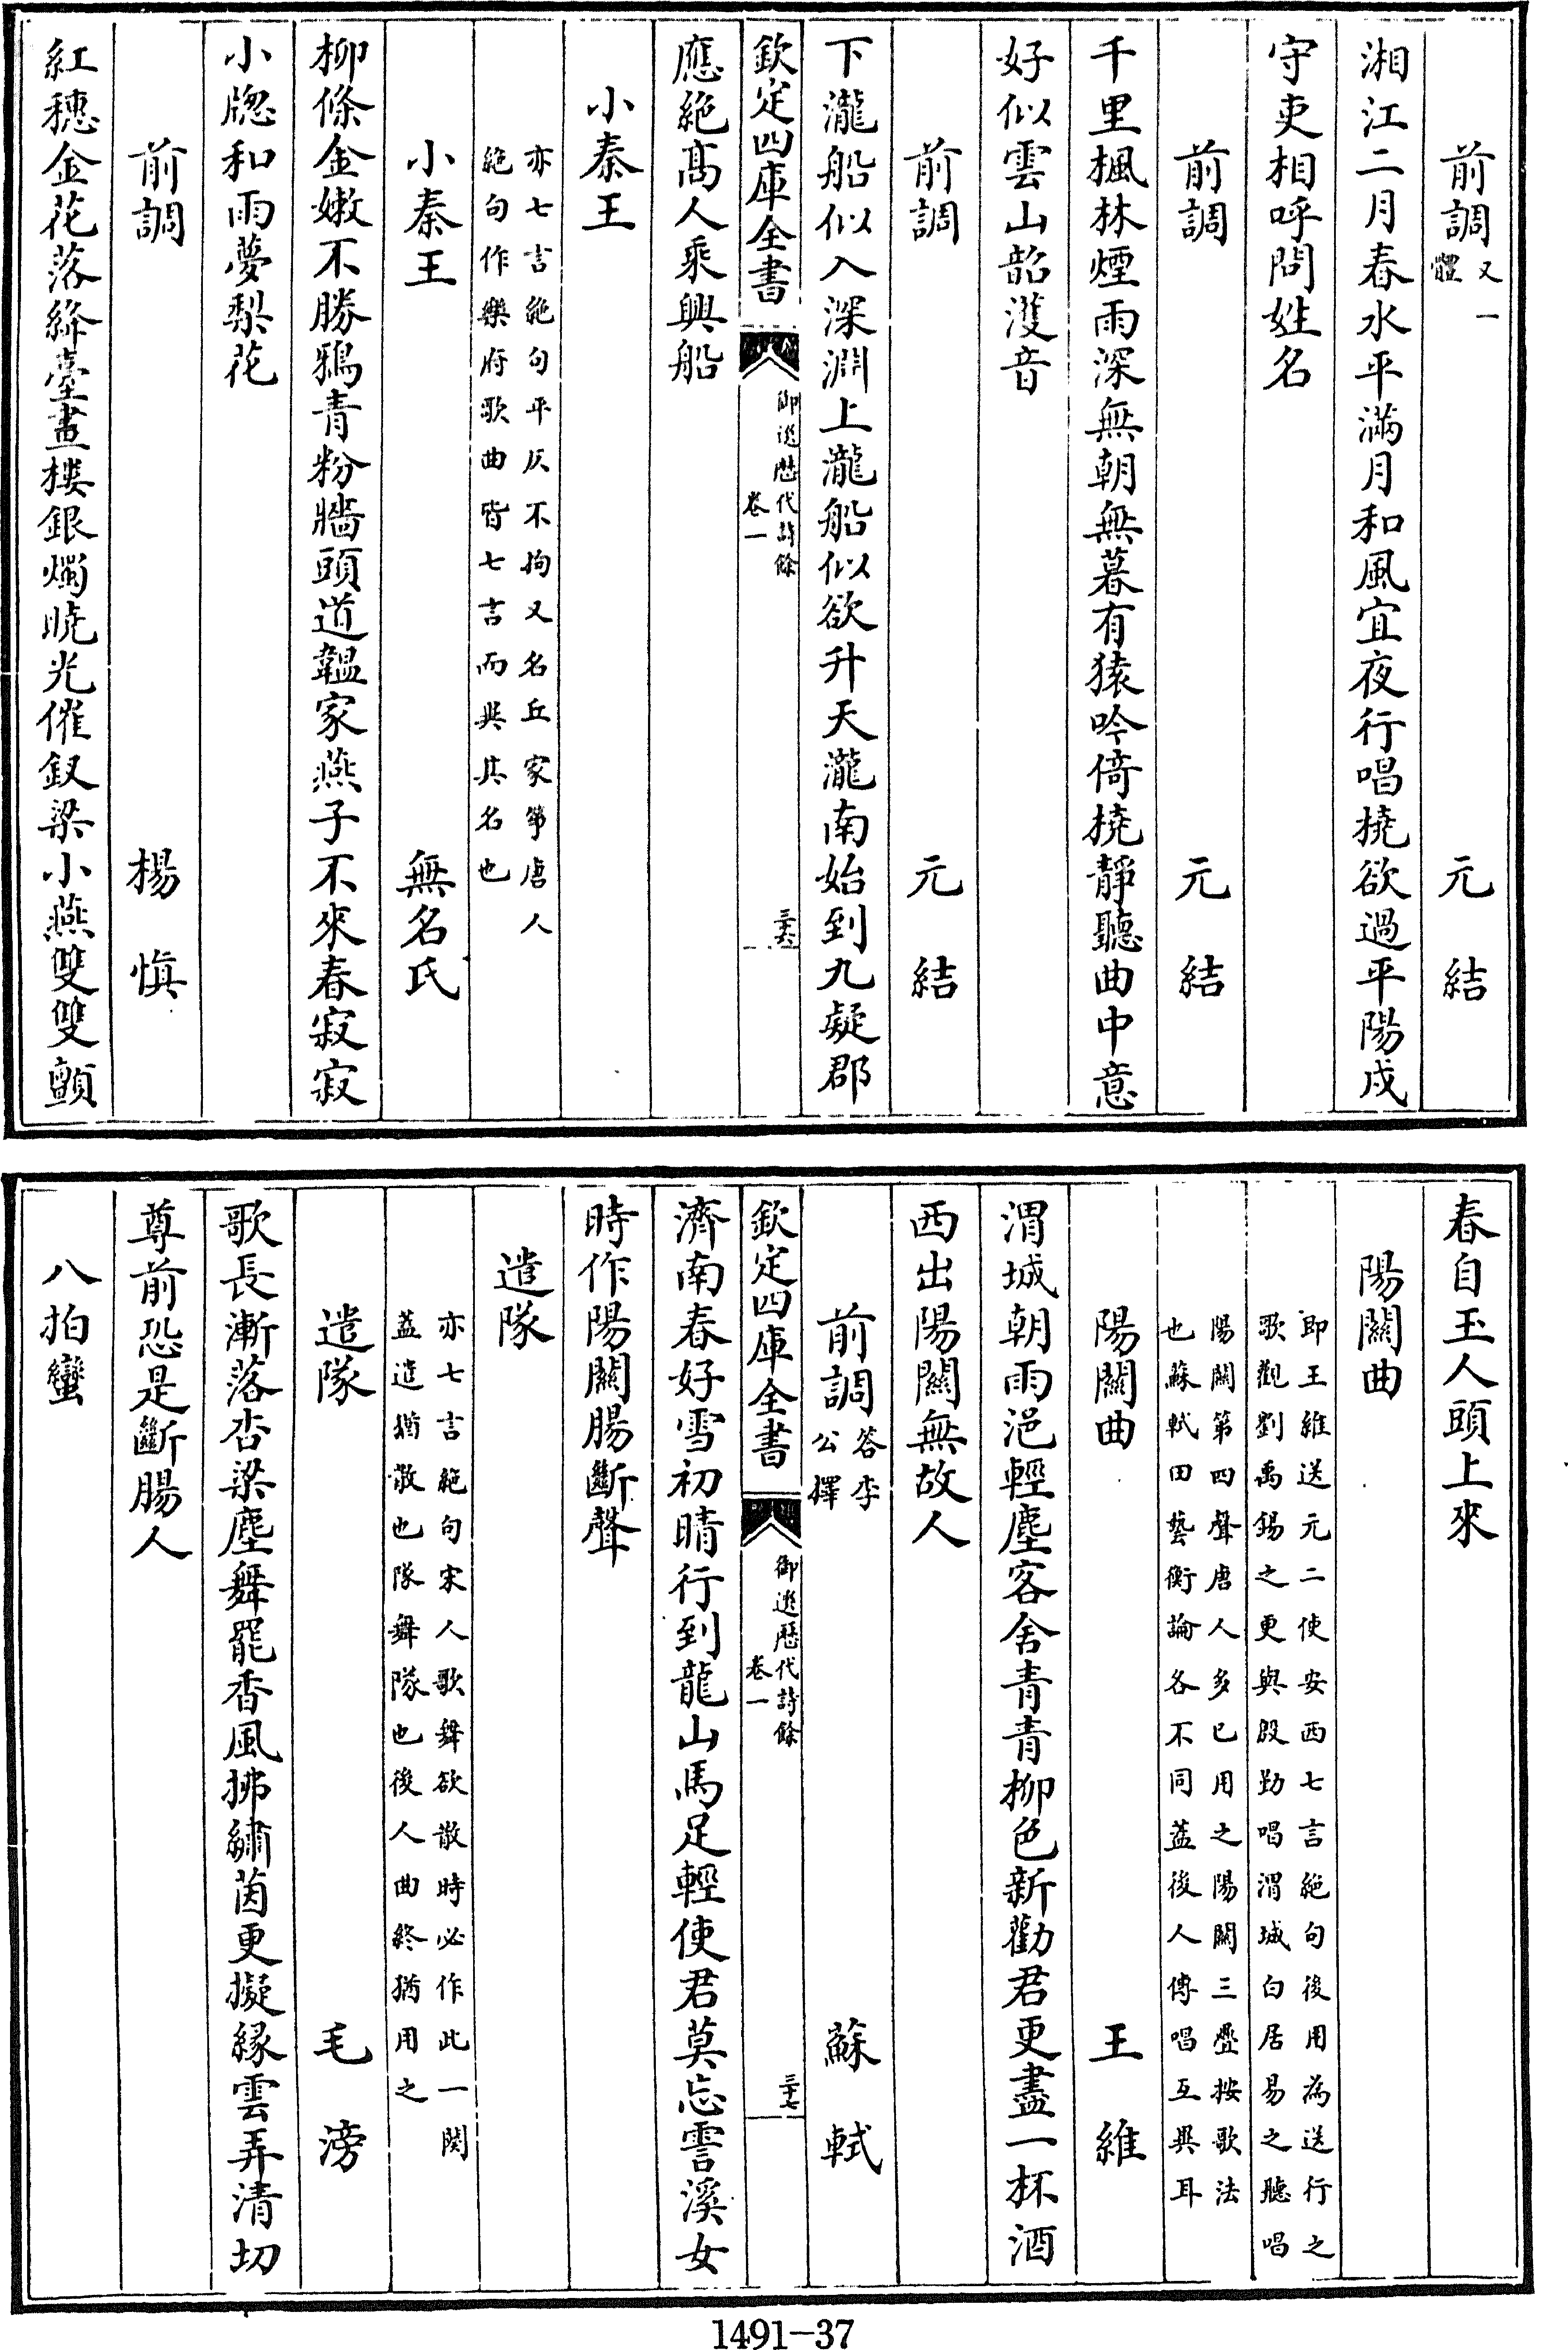 前調又一體　元結
湘江二月春水平滿月和風宜夜行唱橈欲過平陽戍
守吏相呼問姓名
前調　元結
千里楓林煙雨深無朝無暮有猿吟倚橈靜聽曲中意
好似雲山韶濩音
前調　元結
下瀧船似入深淵上瀧船似欲升天瀧南始到九疑郡
欽定四庫全書　御選歷代詩餘卷一　三十六
應絶髙人乘興船
小秦王
亦七言絶句平仄不拘又名丘家筝唐人
絶句作樂府歌曲皆七言而異其名也
小秦王　無名氏
柳條金嫩不勝鴉青粉牆頭道韞家燕子不來春寂寂
小牕和雨夢梨花
前調　楊慎
紅穗金花落絳臺畫樓銀燭曉光催釵梁小燕雙雙顫
春自玉人頭上來
陽關曲
即王維送元二使安西七言絶句後用為送行之
歌觀劉禹錫之更與殷勤唱渭城白居易之聽唱
陽關第四聲唐人多已用之陽關三疊按歌法
也蘇軾田藝衡論各不同蓋後人傳唱互異耳
陽關曲　王維
渭城朝雨浥輕塵客舍青青柳色新勸君更盡一杯酒
西出陽關無故人
前調答李公擇　蘇軾
欽定四庫全書　御選歷代詩餘卷一　三十七
濟南春好雪初晴行到龍山馬足輕使君莫忘霅溪女
時作陽關腸斷聲
遣隊
亦七言絶句宋人歌舞欲散時必作此一闋
蓋遣猶散也隊舞隊也後人曲終猶用之
遣隊　毛滂
歌長漸落杏梁塵舞罷香風拂繡茵更擬緑雲弄清切
尊前恐是斷腸人
八拍蠻
1491-37